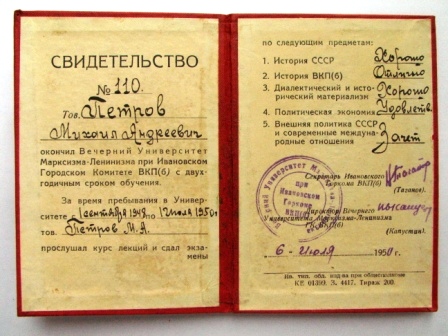 СВИДЕТЕЛЬСТВО
№ 110.
Тов. Петров
Михаил Андреевич
окончил Вечерний Университет
Марксизма-Ленинизма при Ивановском
Городском Комитете ВКП(б) с двух-
годичным сроком обучения.
За время пребывания в Универ-
ситете с 1 сентября 1948 по 1 июля 1950 г.
тов Петров М. А.
прослушал курс лекций и сдал экза-
мены
по следующим предметам:
1. История СССР Хорошо
2. История ВКП(б) Отлично
3. Диалектический и исто-
рический материализм Хорошо
4. Политическая экономия Удовлетв.
5. Внешняя политика СССР
и современные междуна-
родные отношения Зачет
Секретарь Ивановского
Горкома ВКП(б)
Директор Вечернего
Университета Марксизма-Ленинизма
(Капустин).
при
Ивановском
Горкоме
ВКП(б)
6 - июля 1950 г.